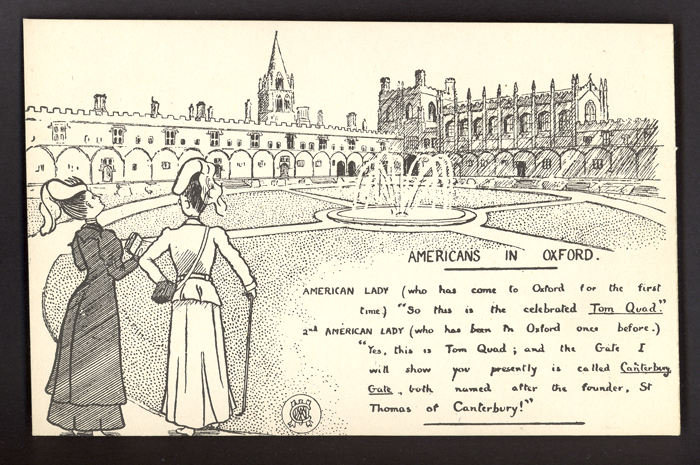 AMERICANS IN OXFORD.
AMERICAN LADY (who has come to Oxford for the first
time.) "So this is the celebrated Tom Quad."
2nd AMERICAN LADY (who has been in Oxford once before.)
"Yes, this is Tom Quad; and the Gate I
will show you presently is called Canterbury
Gate, both named after the founder, St
Thomas of Canterbury!"